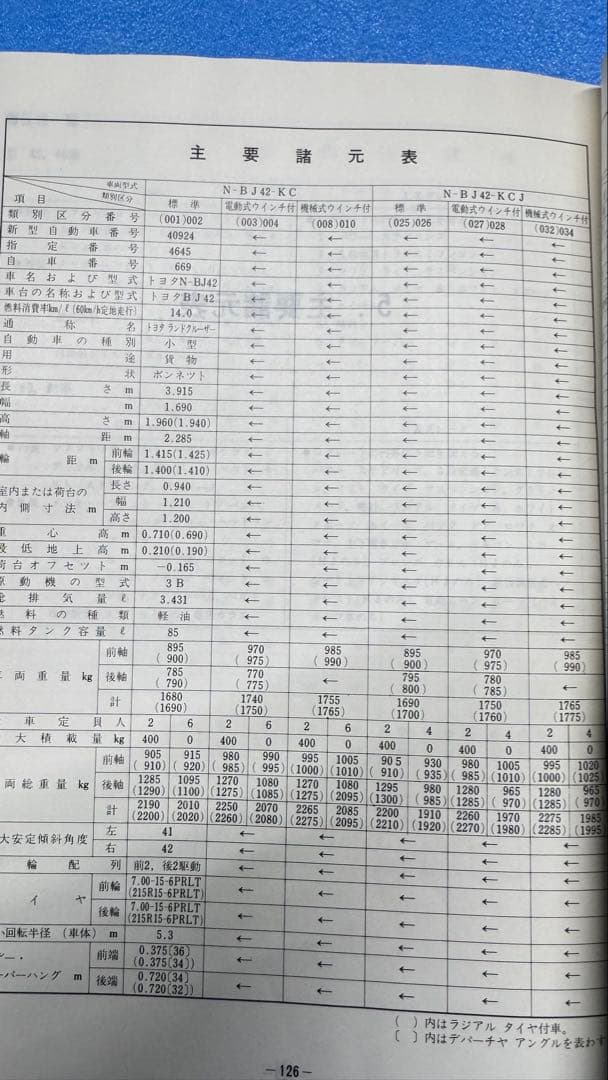 主要諸元表
車両型式 N-BJ42-KC N-BJ42-KCJ
項目 類別区分 標準 電動式ウインチ付 機械式ウインチ付 標準 電動式ウインチ付 機械式ウインチ付
類別区分番号 (001)002 (003)004 (008)010 (025)026 (027)028 (032)034
新型自動車番号 40924 ← ← ← ← ←
指定番号 4645 ← ← ← ← ←
自車番号 669 ← ← ← ← ←
車名および型式 トヨタN-BJ42 ← ← ← ← ←
車台の名称および型式 トヨタBJ42 ← ← ← ← ←
燃料消費率km/ℓ(60km/h定地走行) 14.0 ← ← ← ← ←
通称名 トヨタランドクルーザー ← ← ← ← ←
自動車の種別 小型 ← ← ← ← ←
用途 貨物 ← ← ← ← ←
形状 ボンネット ← ← ← ← ←
長さm 3.915 ← ← ← ← ←
幅m 1.690 ← ← ← ← ←
高さm 1.960(1.940) ← ← ← ← ←
軸距m 2.285 ← ← ← ← ←
輪距m 前輪 1.415(1.425) ← ← ← ← ←
後輪 1.400(1.410) ← ← ← ← ←
室内または荷台の内側寸法m 長さ 0.940 ← ← ← ← ←
幅 1.210 ← ← ← ← ←
高さ 1.200 ← ← ← ← ←
重心高m 0.710(0.690) ← ← ← ← ←
最低地上高m 0.210(0.190) ← ← ← ← ←
荷台オフセットm -0.165 ← ← ← ← ←
原動機の型式 3B ← ← ← ← ←
総排気量ℓ 3.431 ← ← ← ← ←
燃料の種類 軽油 ← ← ← ← ←
燃料タンク容量ℓ 85 ← ← ← ← ←
両重量kg 前軸 895(900) 970(975) 985(990) 895(900) 970(975) 985(990)
後軸 785(790) 770(775) ← 795(800) 780(785) ←
計 1680(1690) 1740(1750) 1755(1765) 1690(1700) 1750(1760) 1765(1775)
車定員人 2 6 2 6 2 6 2 4 2 4 2 4
大積載量kg 400 0 400 0 400 0 400 0 400 0 400 0
両総重量kg 前軸 905(910) 915(920) 980(985) 990(995) 995(1000) 1005(1010) 905(910) 930(935) 980(985) 1005(1010) 995(1000) 1020(1025
後軸 1285(1290) 1095(1100) 1270(1275) 1080(1085) 1270(1275) 1080(2095) 1295(1300) 980(985) 1280(1285) 965(970) 1280(1285) 965(970
計 2190(2200) 2010(2020) 2250(2260) 2070(2080) 2265(2275) 2085(2095) 2200(2210) 1910(1920) 2260(2270) 1970(1980) 2275(2285) 1985(1995
大安定傾斜角度 左 41 ← ← ← ← ←
右 42 ← ← ← ← ←
輪配列 前2,後2駆動 ← ← ← ← ←
イヤ 前輪 7.00-15-6PRLT(215R15-6PRLT) ← ← ← ← ←
後輪 7.00-15-6PRLT(215R15-6PRLT) ← ← ← ← ←
小回転半径(車体)m 5.3 ← ← ← ← ←
ーバーハングm 前端 0.375[36](0.375[34]) ← ← ← ← ←
後端 0.720[34](0.720[32]) ← ← ← ← ←
( )内はラジアルタイヤ付車。
[ ]内はデパーチャアングルを表わす
-126-